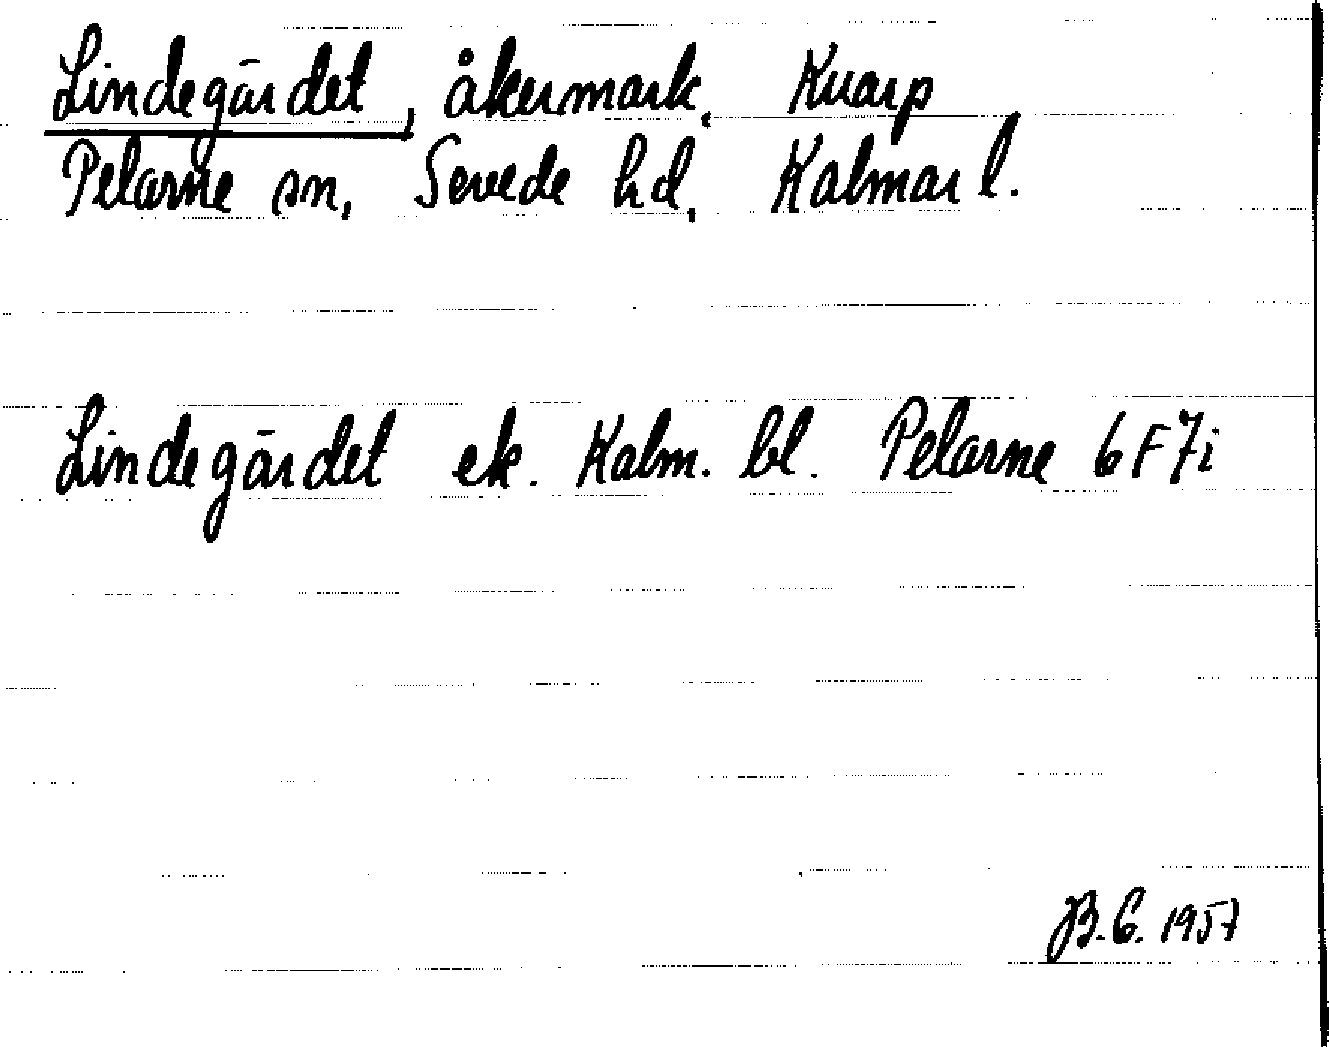 Lindegärdet, åkermark, Knarp
Pelarne sn, Sevede hd, Kalmar l.
Lindegärdet ek. Kalm. bl. Pelarne 6F7i
B.G. 1957